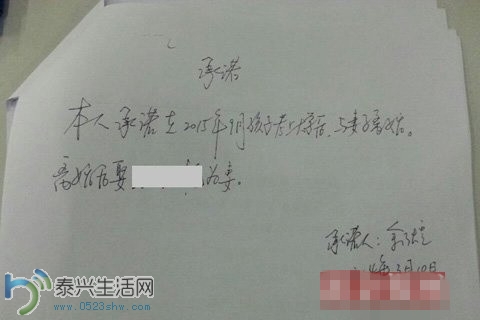 承诺
本人承诺在2015年9月孩子考上大学后,与妻子离婚。
离婚后娶 为妻。
承诺人:余
月10日
泰兴生活网
www.0523shw.com